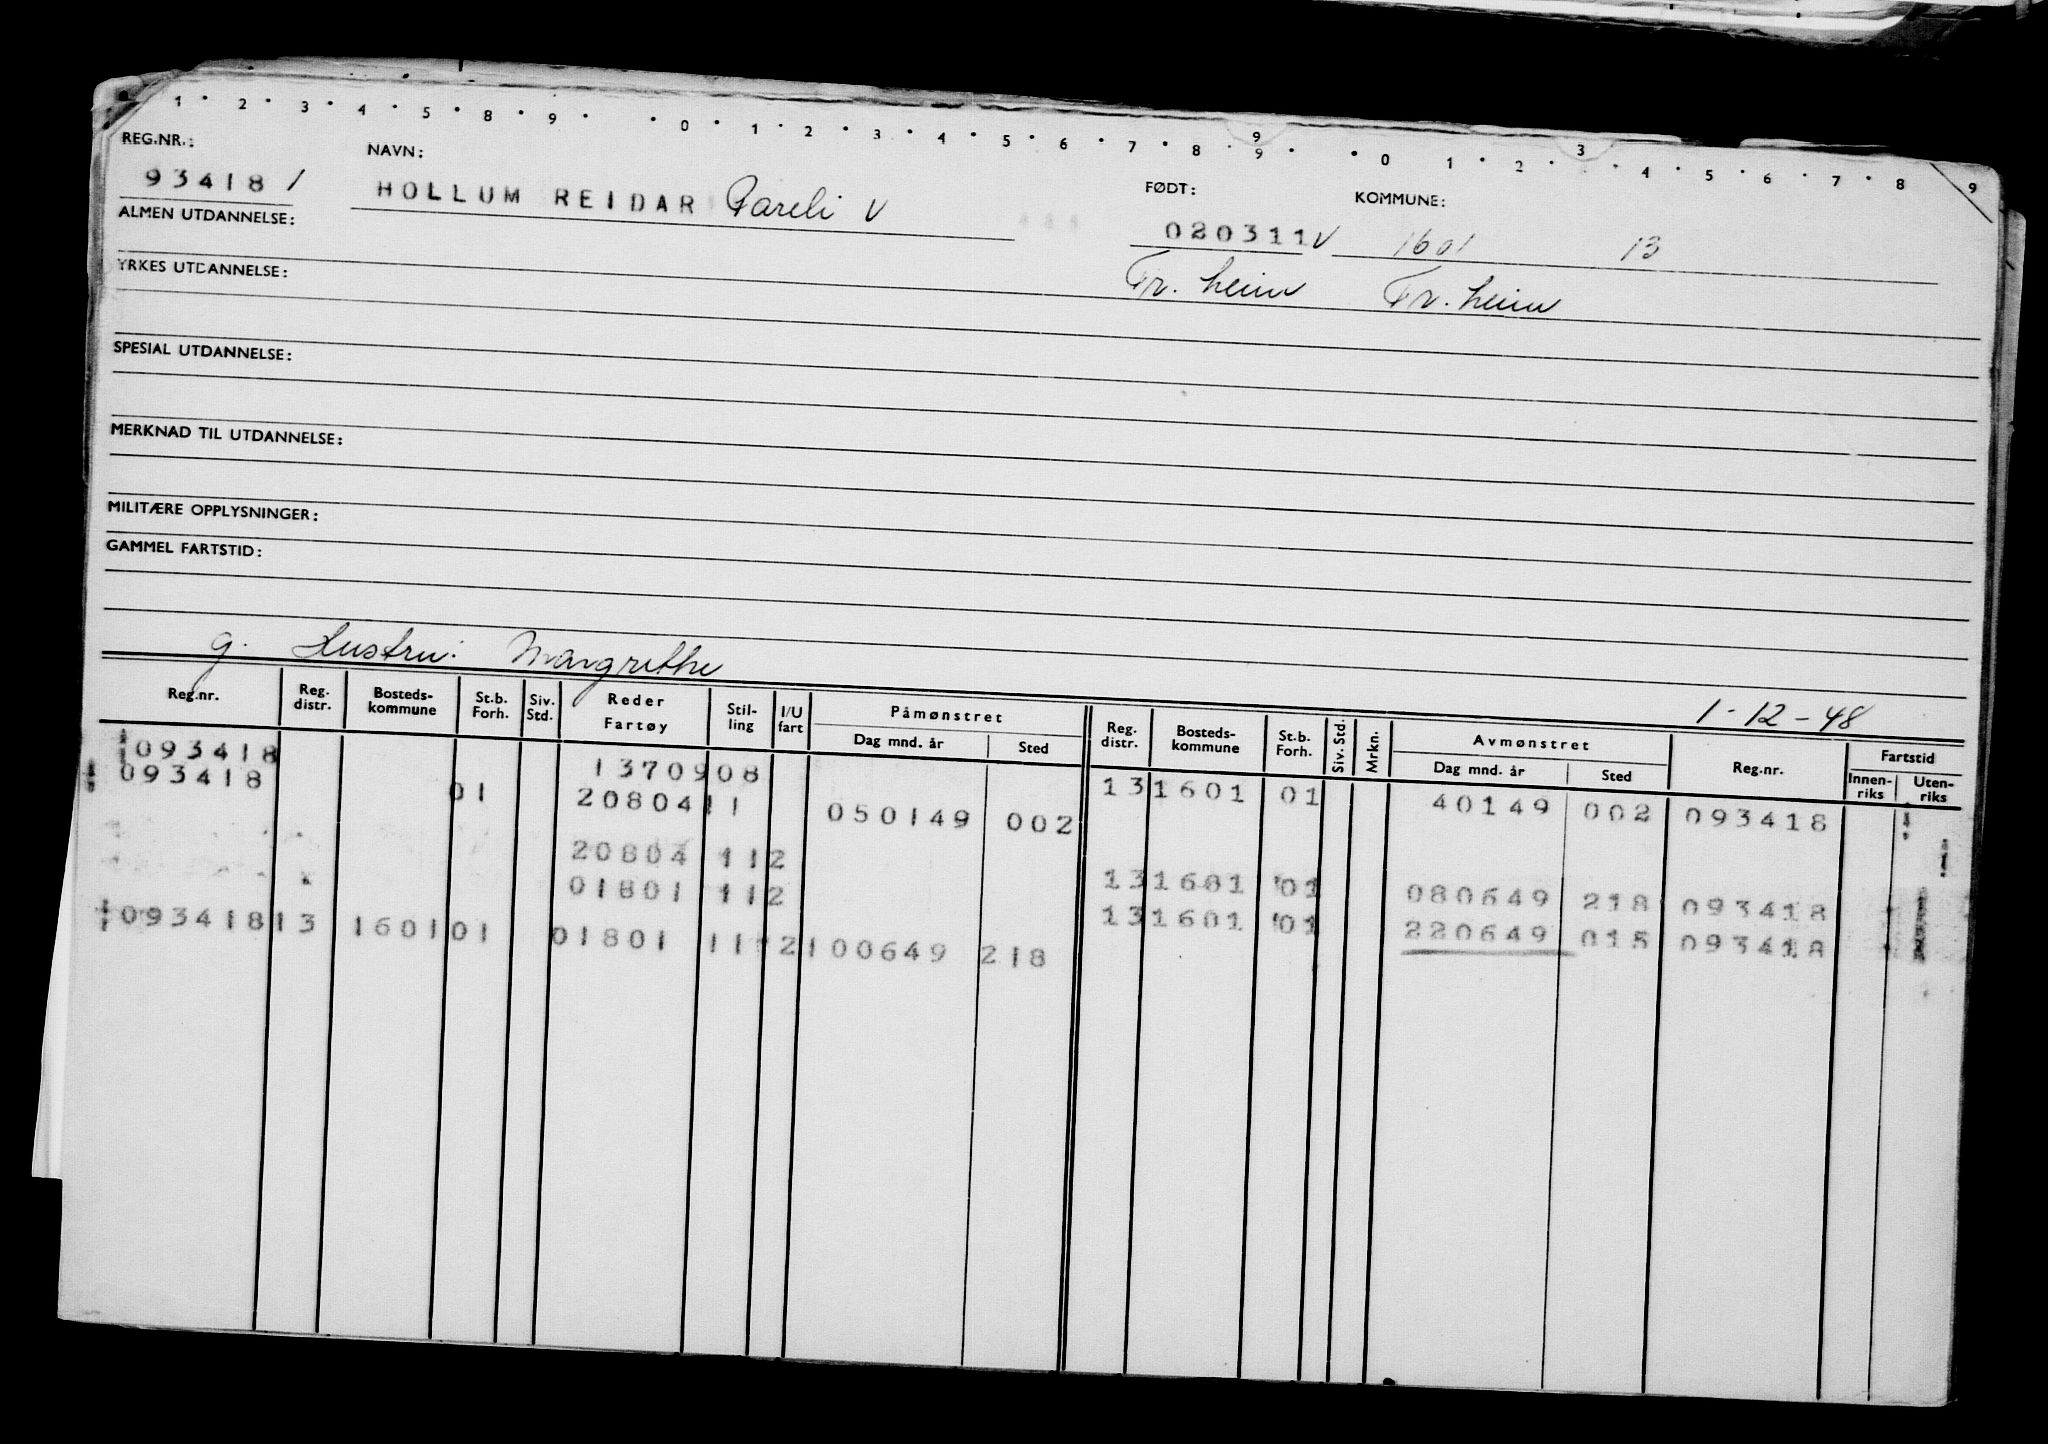 1 · 2 · 3 · 4 · 5 · 8 · 9 · · 0 · 1 · 2 · 3 · 4 · 5 · 6 · 7 · 8 · 9 · · 0 1 · 2 · 3 · 4 · 5 · 6 · 7 · 8 9
9 3
REG.NR.: NAVN: FØDT: KOMMUNE:
93418 / HOLLUM REIDAR Pareli V 020311 V 1601 13
ALMEN UTDANNELSE:
Tr. heim Tr. heim
YRKES UTDANNELSE:
SPESIAL UTDANNELSE:
MERKNAD TIL UTDANNELSE:
MILITÆRE OPPLYSNINGER:
GAMMEL FARTSTID:
g. Hustru: Margrethe
1-12-48
Reg.nr. Reg. distr. Bosteds-kommune St.b. Forh. Siv. Std. Reder Fartøy Stil-ling I/U fart Påmønstret Dag mnd. år Sted Reg. distr. Bosteds-kommune St.b. Forh. Siv. Std. Mrkn. Avmønstret Dag mnd. år Sted Reg.nr. Fartstid Innen-riks Uten-riks
093418 1370908 131601 01 40149 002 093418
093418 01 2080411 050149 002
20804 112 131601 01 080649 218 093418
01801 112 131601 01 220649 015 093418
093418 13 1601 01 01801 11 2 100649 218